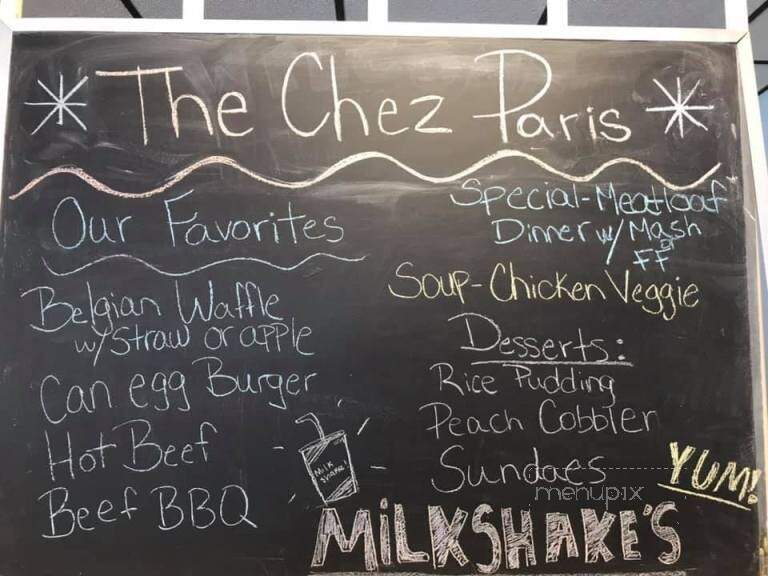 The Chez Paris
Our Favorites
Belgian Waffle
w/straw or apple
Can egg Burger
Hot Beef
Beef BBQ
Special-Meatloaf
Dinner w/ Mash
or
FF
Soup-Chicken Veggie
Desserts:
Rice Pudding
Peach Cobbler
Sundaes
YUM!
Milk
Shake!
MiLKSHAKE'S
menupix